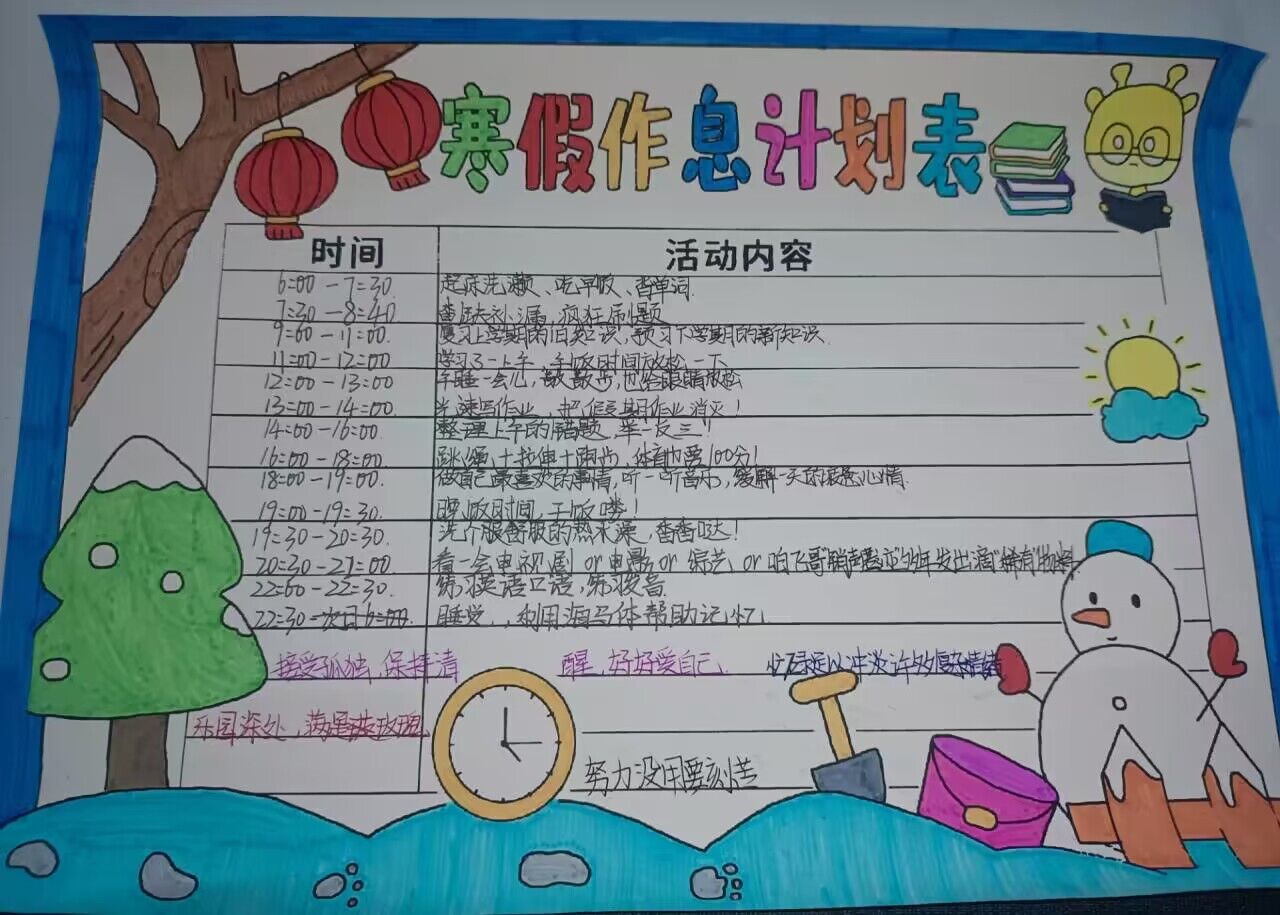 寒假作息计划表
时间 活动内容
6:00-7:30 起床洗漱、吃早饭、背单词
7:30-8:40 查缺补漏,疯狂刷题
9:00-11:00. 复习上学期的旧知识,预习下学期的新知识.
11:00-12:00 学习了一上午,干饭时间放松一下
12:00-13:00 午睡一会儿,散散步,也给眼睛放松
13:00-14:00. 光速写作业,把假期作业消灭!
14:00-16:00 整理上午的错题,举一反三!!
16:00-18:00 跳绳+拉伸+跑步,体育也要100分!
18:00-19:00. 做自己最喜欢的事情,听一听音乐,缓解一天的疲惫心情.
19:00-19:30. 晚饭时间,干饭喽!
19:30-20:30. 洗个服舒服的热水澡,香香哒!
20:30-21:00. 看一会电视剧 or 电影 or 综艺 or 
22:00-22:30. 练习英语口语,练习发音.
22:30-次日6:00. 睡觉,,利用海马体帮助记忆
接受孤独,保持清 醒,好好爱自己. 忙碌足以冲淡许多复杂情绪
乐园深处,满是 玫瑰
努力没用要刻苦